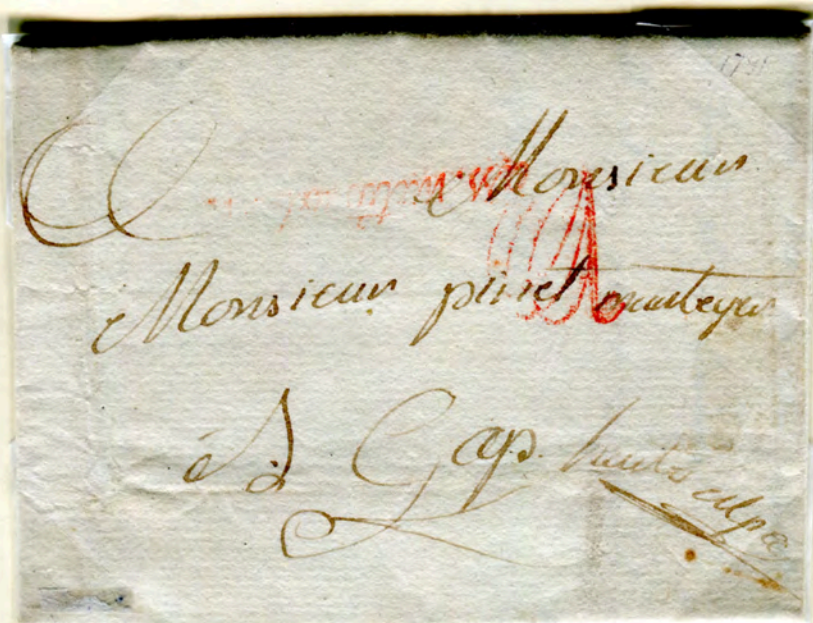 A Monsieur
Monsieur pinet manteyer
A Gap. hautes alpes